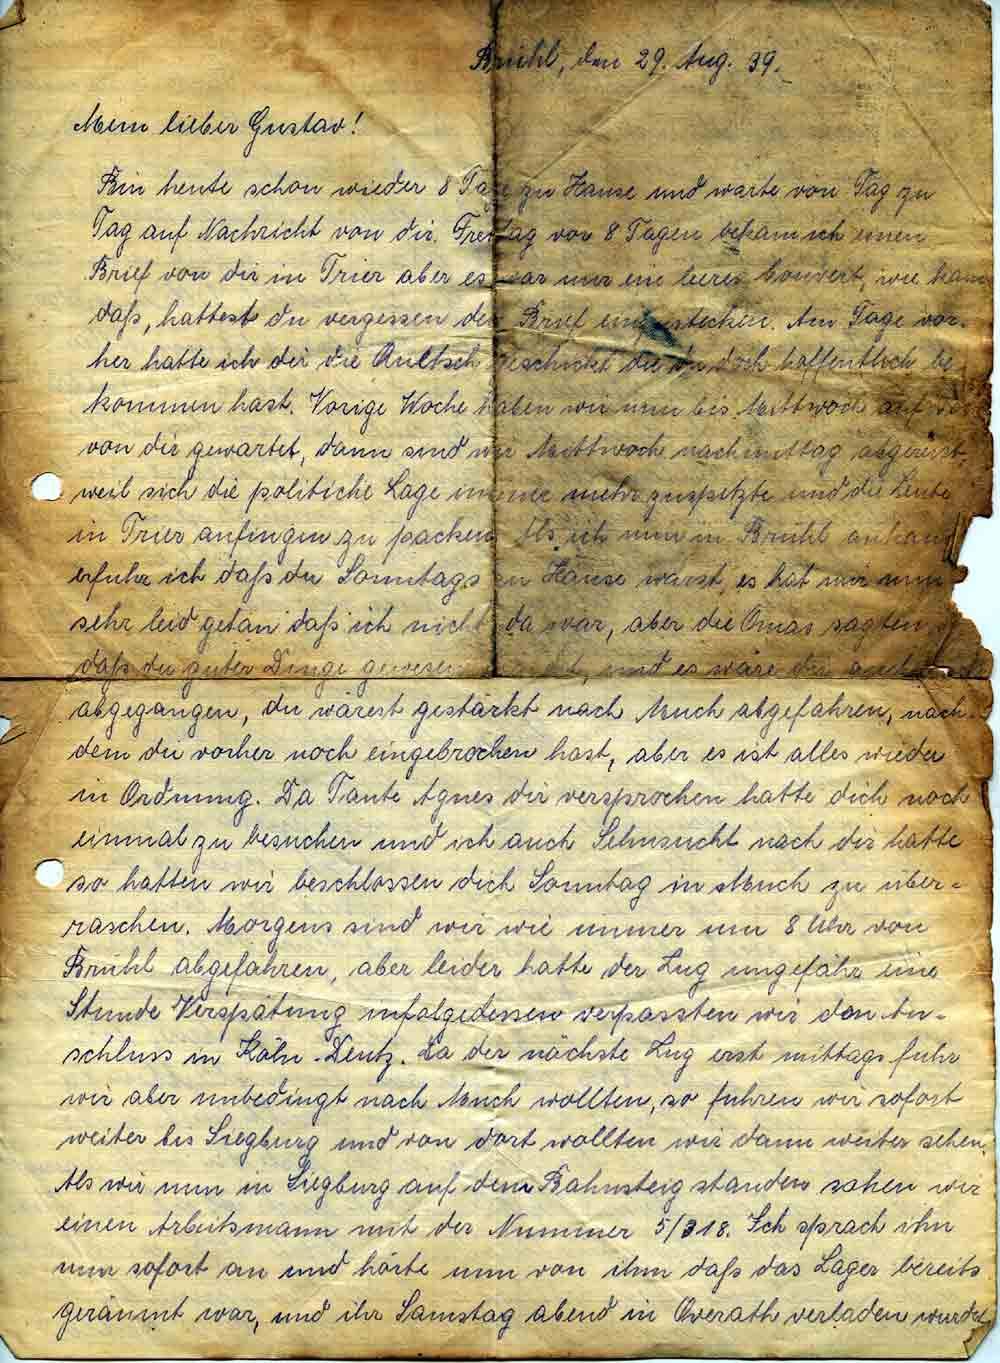 Brühl, den 29. Aug. 39.
Mein lieber Gustav!
Bin heute schon wieder 8 Tage zu Hause und warte von Tag zu
Tag auf Nachricht von dir. Freitag vor 8 Tagen bekam ich einen
Brief von dir in Trier aber es war nur ein leeres Couvert, wie kam
daß, hattest du vergessen den Brief einzustecken. Am Tage vor-
her hatte ich dir die geschickt die du doch hoffentlich be
kommen hast. Vorige Woche haben wir nun bis Mittwoch auf
von dir gewartet, dann sind wir Mittwoch nachmittag abgereist,
weil sich die politiche Lage immer mehr zuspitzte und die Leute
in Trier anfingen zu packen. Als ich nun in Brühl ankam
erfuhr ich daß du Sonntags zu Hause warst, es hat mir nun
sehr leid getan daß ich nicht da war, aber die Omas sagten
daß du guter Dinge gewesen und es wäre dir
abgegangen, du wärest gestärkt nach Much abgefahren, nach-
dem du vorher noch eingebrochen hast, aber es ist alles wieder
in Ordnung. Da Tante Agnes dir versprochen hatte dich noch
einmal zu besuchen und ich auch Sehnsucht nach dir hatte
so hatten wir beschlossen dich Sonntag in Much zu über-
raschen. Morgens sind wir wie immer um 8 Uhr von
Brühl abgefahren, aber leider hatte der Zug ungefähr eine
Stunde Verspätung infolgedessen verpassten wir den An-
schluss in Köln-Deutz. Da der nächste Zug erst mittags fuhr
wir aber unbedingt nach Much wollten, so fuhren wir sofort
weiter bis Siegburg und von dort wollten wir dann weiter sehen.
Als wir nun in Siegburg auf dem Bahnsteig standen sahen wir
einen Arbeitsmann mit der Nummer 5/218. Ich sprach ihn
nun sofort an und hörte nun von ihm daß das Lager bereits
geräumt war, und ihr Samstag abend in Overath verladen wurdet